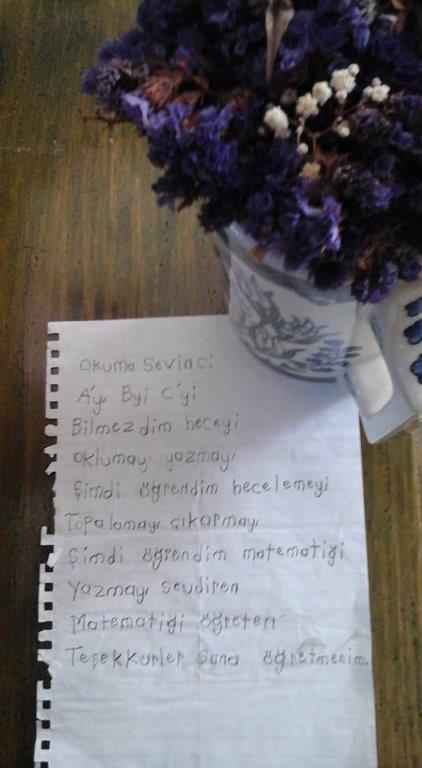 Okuma Sevinci
A'yı Byi C'yi
Bilmezdim heceyi
Oklumayı yazmayı
Şimdi öğrendim hecelemeyi
Topalamayı çıkarmayı
Şimdi öğrendim matematiği
Yazmayı sevdiren
Matematiği öğreten
Teşekkürler Sana öğretmenim.